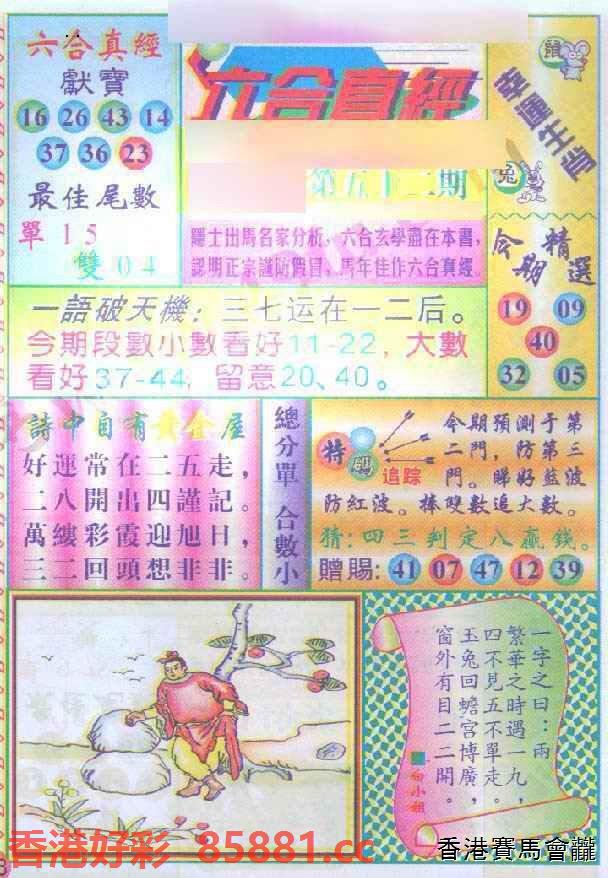 六合真經
獻寶
16 26 43 14
37 36 23
最佳尾數
單 15
雙 04
六合真經
第五十二期
隱士出馬名家分析，六合玄學盡在本書，
認明正宗謹防假冒，馬年佳作六合真經。
幸運生肖
鼠
兔
今期精選
19 09
40
32 05
一語破天機：三七运在一二后。
今期段數小數看好11-22，大數
看好37-44，留意20、40。
詩中自有黃金屋
好運常在二五走，
二八開出四謹記。
萬縷彩霞迎旭日，
三二回頭想非非。
總分單 合數小
特碼
追踪
今期預測于第
二門，防第三
門。睇好藍波
防紅波。捧雙數追大數。
猜：四三判定八贏錢。
贈賜：41 07 47 12 39
一字之曰：兩
繁華之時遇一九，
四不見五不單走。
玉兔回蟾宮博廣，
窗外有目二二開。
小姐
香港好彩 85881.cc
香港賽馬會